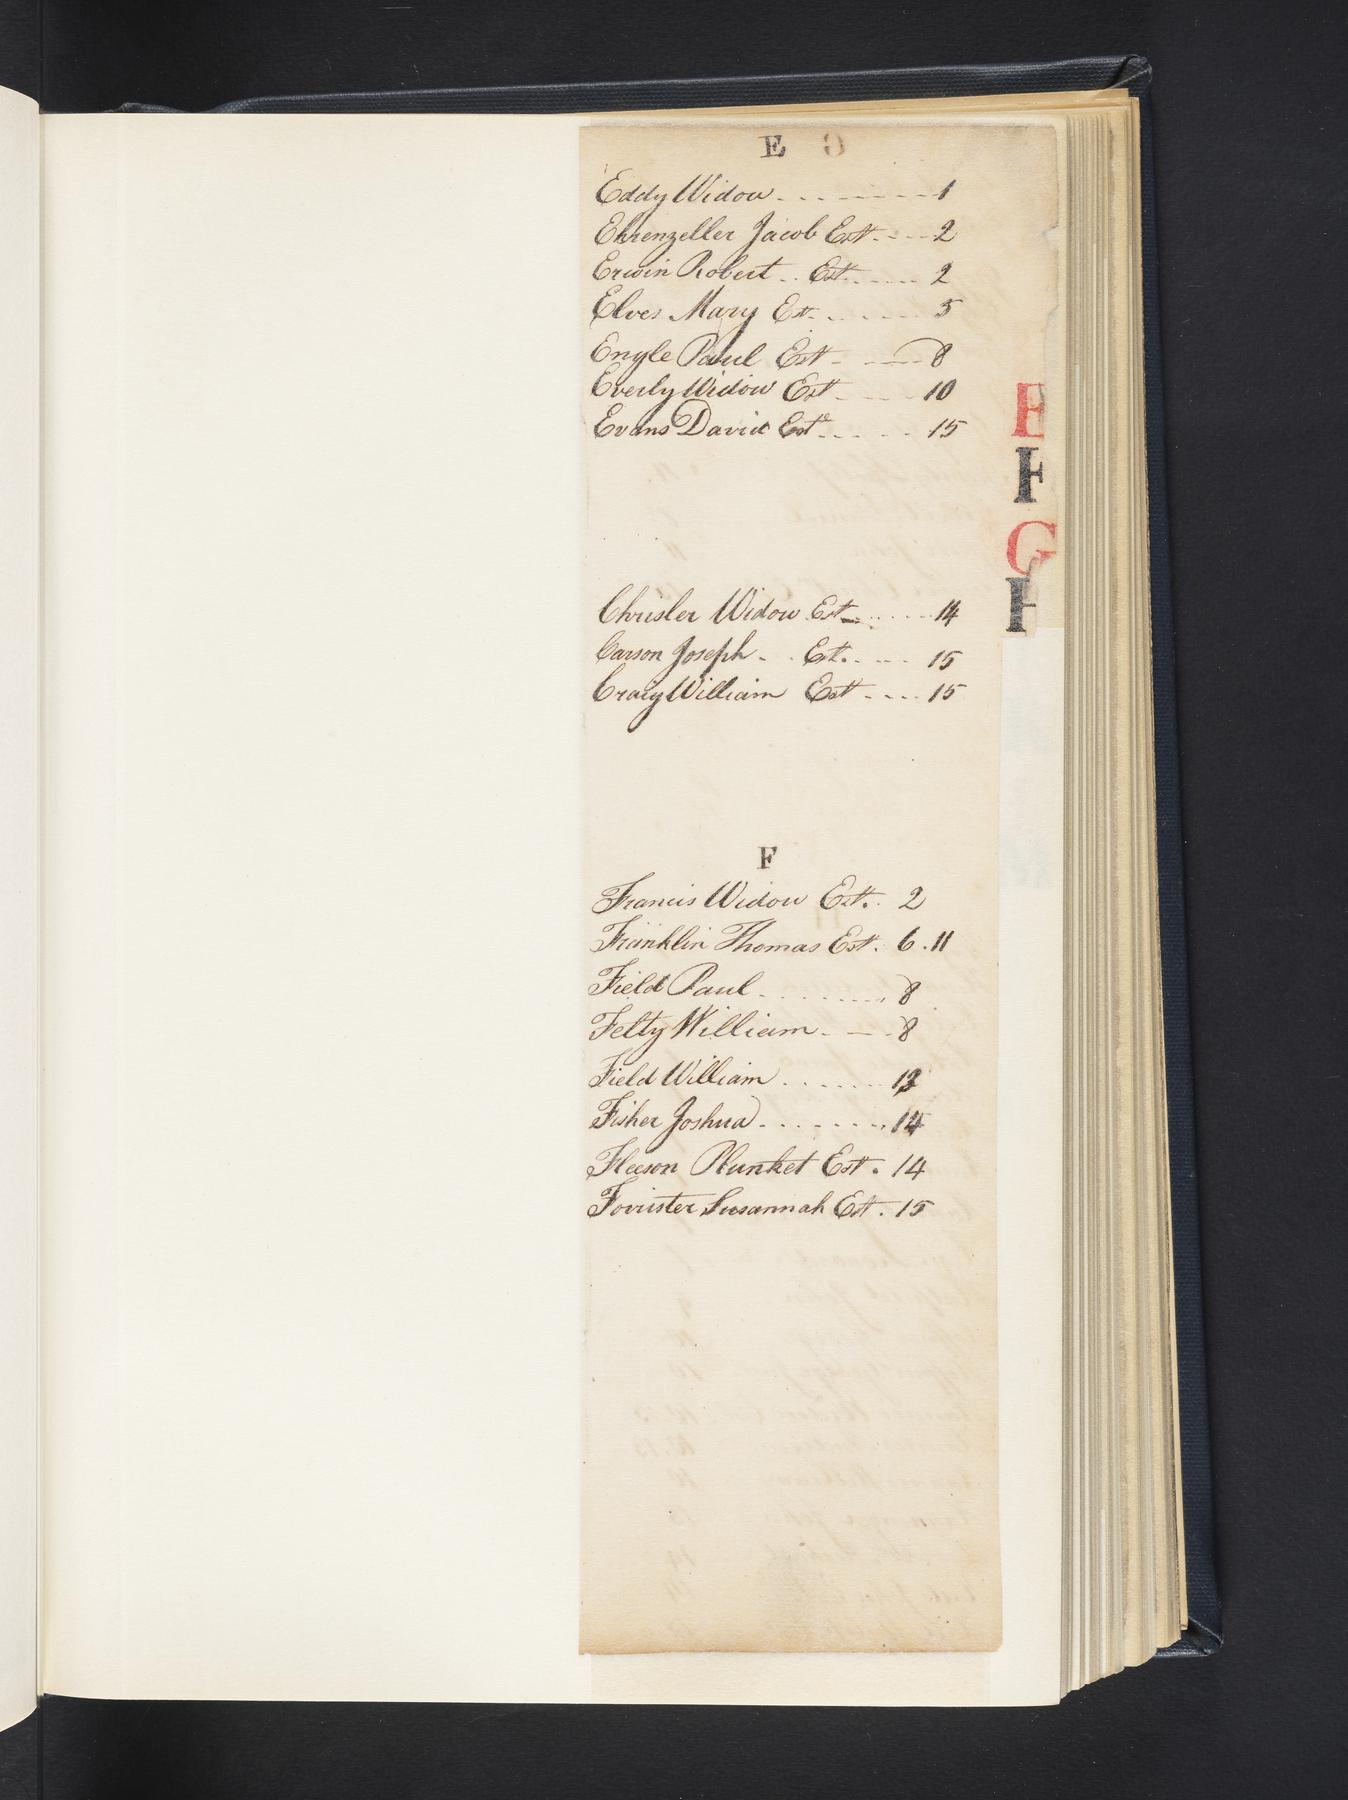 E
Eddy Widow - - - - - - - 1
Ehrenzeller Jacob Est. - - - 2
Erwin Robert . . Est. - - - - 2
Elves Mary Est. - - - - - 5
Engle Paul Est - - - - 8
Everly Widow Est - - - - 10
Evans David Est - - - - - 15
E
F
G
H
Chrisler Widow Est - - - - - 14
Carson Joseph - . Est. - - - 15
Craig William Est - - - - 15
F
Francis Widow Est. . 2
Franklin Thomas Est. 6 . 11
Field Paul - - - - - - - 8
Felty William - - - - 8
Field William - - - - - - 13
Fisher Joshua - - - - - - - 14
Fleeson Plunket Est . 14
Forrister Susannah Est . 15